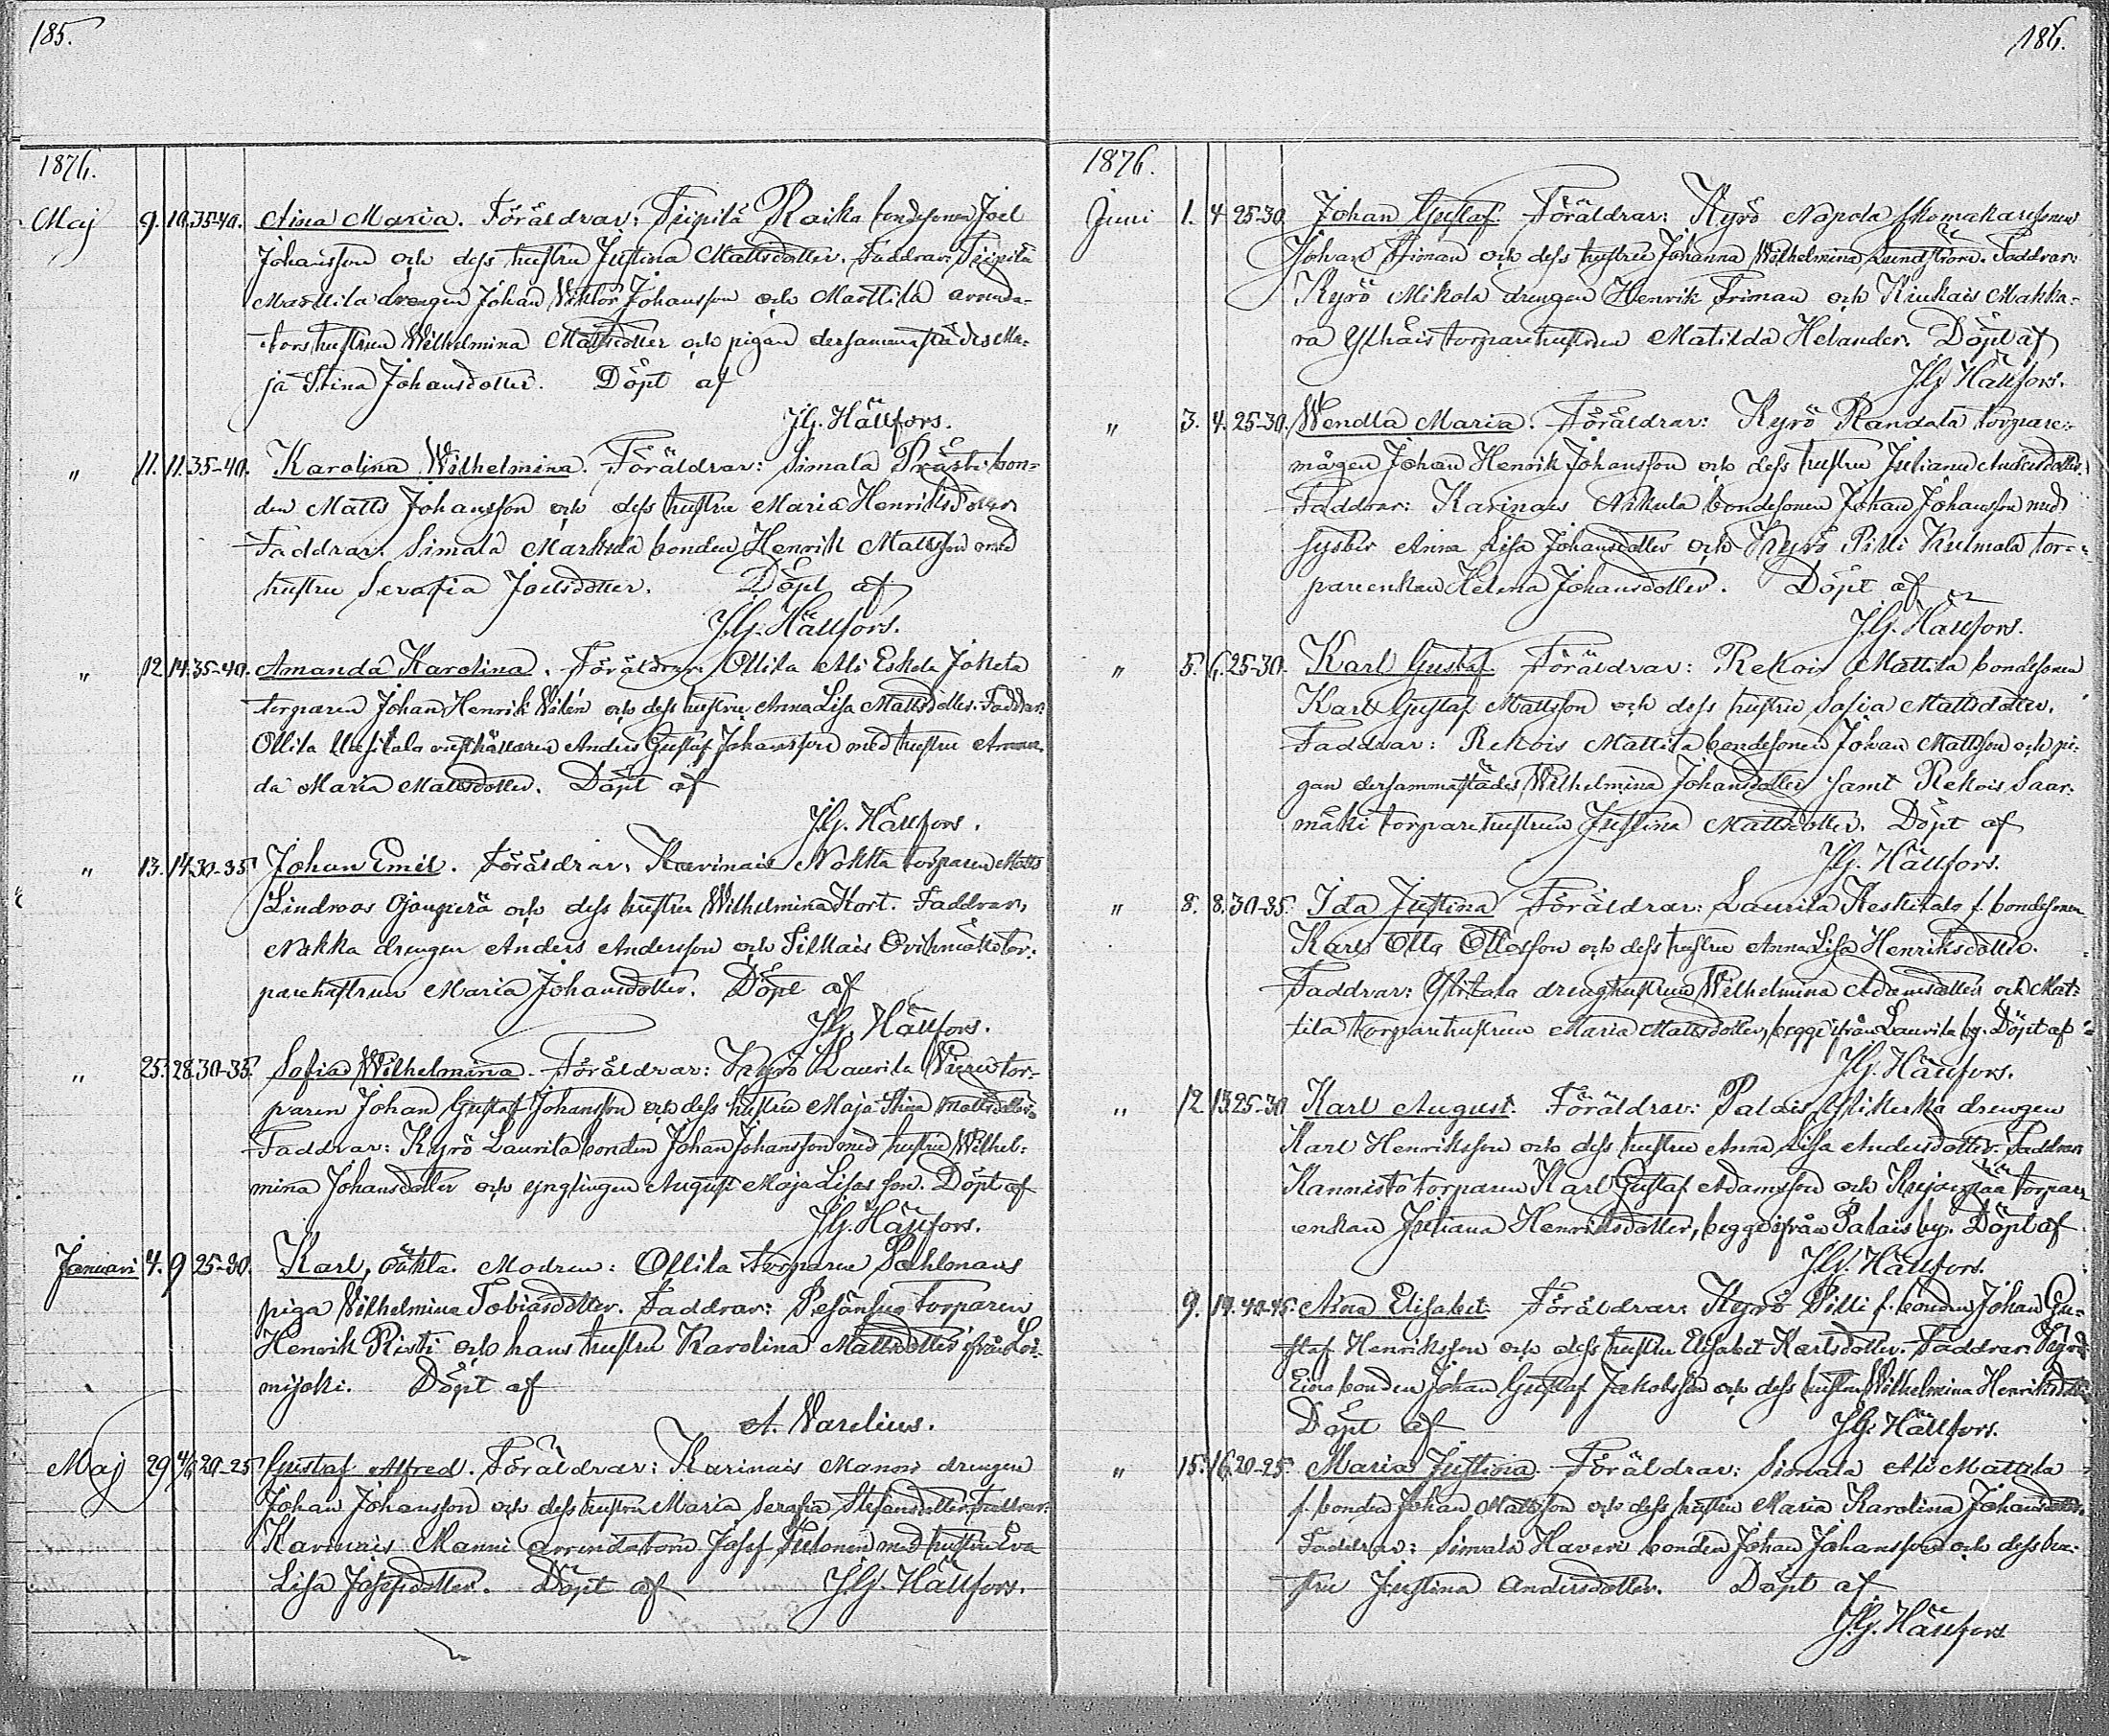 185.
1876.
Maj 9. 10. 35-40. Aina Maria. Föräldrar: Tripilä Raika bondesonen Joel
Johansson och dess hustru Justina Mattsdotter. Faddrar: Tripilä
Marttila drengen Johan Viktor Johansson och Marttila arenda-
tors hustrun Wilhelmina Mattsdotter och pigan dersammastädes Ma-
ja Stina Johansdotter. Döpt af
J.G. Hällfors.
" 11. 11. 35-40. Karolina Wilhelmina. Föräldrar: Simala Prästi bon-
den Matts Johansson och dess hustru Maria Henriksdotter
Faddrar: Simala Markula bonden Henrik Mattsson med
hustru Serafia Joelsdotter. Döpt af
J.G. Hällfors.
" 12. 14. 35-40. Amanda Karolina. Föräldrar: Ollila Ali Eskola Jokela
torparen Johan Henrik Vilén och dess hustru Anna Lisa Mattsdotter. Faddrar:
Ollila Uusitalo rusthållaren Anders Gustaf Johansson med hustru Aman-
da Maria Mattsdotter. Döpt af
J.G. Hällfors.
" 13. 14. 30-35. Johan Emil. Föräldrar: Karinais Nokka torparen Matts
Lindroos Ojanperä och dess hustru Wilhelmina Kort. Faddrar,
Nokka drengen Anders Andersson och Tilkais Orihmäki tor-
parehustrun Maria Johansdotter. Döpt af
J.G. Hällfors.
" 25. 28. 30-35. Sofia Wilhelmina. Föräldrar: Kyrö Laurila Vieru tor-
paren Johan Gustaf Johansson och dess hustru Maja Stina Mattsdotter.
Faddrar: Kyrö Laurila bonden Johan Johansson med hustru Wilhel-
mina Johansdotter och ynglingen August Maja Lisas son. Döpt af
J.G. Hällfors.
Januari 4. 9 25-30. Karl, oäkta. Modren: Ollila torparen Pahlmans
piga Vilhelmina Tobiasdotter. Faddrar: Pesänsuo torparen
Henrik Risti och hans hustru Karolina Mattsdotter ifrån Loi-
mijoki. Döpt af
A. Varelius.
Maj 29 4/6 20-25 Gustaf Alfred. Föräldrar: Karinais Manni drengen
Johan Johansson och dess hustru Maria Serafia Stefansdotter. Faddrar:
Karinais Manni arrendatorn Josef Tuhonen med hustru Eva
Lisa Josefsdotter. Döpt af J.G. Hällfors.
186.
1876.
Juni 1. 4 25-30. Johan Gustaf. Föräldrar: Kyrö Nopola skomakaresonen
Johan Himan och dess hustru Johanna Wilhelmina Lundström. Faddrar:
Kyrö Mikola drengen Henrik Friman och Kiukais Makka-
ra Ylhäis torparehustrun Matilda Helander. Döpt af
J.G. Hällfors.
" 3. 4. 25-30. Wendla Maria. Föräldrar: Kyrö Randala torpare-
mågen Johan Henrik Johansson och dess hustru Juliana Andersdotter.
Faddrar: Karinais Nikula bondesonen Johan Johansson med
syster Anna Lisa Johansdotter och Kyrö Pilli Kulmala tor-
pareenkan Helena Johansdotter. Döpt af
J.G. Hällfors.
" 5. 6. 25-30. Karl Gustaf. Föräldrar: Rekois Mattila bondesonen
Karl Gustaf Mattsson och dess hustru Sofia Mattsdotter.
Faddrar: Rekois Mattila bondesonen Johan Mattsson och pi-
gan dersammastädes Wilhelmina Johansdotter samt Rekois Saar-
mäki torparehustrun Justina Mattsdotter. Döpt af
J.G. Hällfors.
" 8. 8. 30-35. Ida Justina Föräldrar: Laurila Keskitalo f. bondesonen
Karl Otto Ottosson och dess hustru Anna Lisa Henriksdotter.
Faddrar: Ylitala drenghustrun Wilhelmina Adamsdotter och Mat-
tila torparehustrun Maria Mattsdotter, begge ifrån Laurila by. Döpt af
J.G. Hällfors.
" 12 13. 25-30 Karl August. Föräldrar: Palais drengen
Karl Henriksson och dess hustru Anna Lisa Andersdotter. Faddrar:
Kannisto torparen Karl Gustaf Adamsson och Kujanpää torpare
enkan Juliana Henriksdotter, begge ifrån Palais by. Döpt af
J.G. Hällfors.
9. 14. 40-45. Aina Elisabet. Föräldrar: Kyrö Pilli f. bonden Johan Gu-
staf Henriksson och dess hustru Elisabet Karlsdotter. Faddrar: Kyrö
Eino bonden Johan Gustaf Jakobsson och dess hustru Wilhelmina Henriksdotter.
Döpt af J.G. Hällfors.
" 15. 16. 20-25. Maria Justina. Föräldrar: Simala Ali Mattila
f. bonden Johan Mattsson och dess hustru Maria Karolina Johansdotter.
Faddrar: Simala Haveri bonden Johan Johansson och dess hu-
stru Justina Andersdotter. Döpt af
J.G. Hällfors